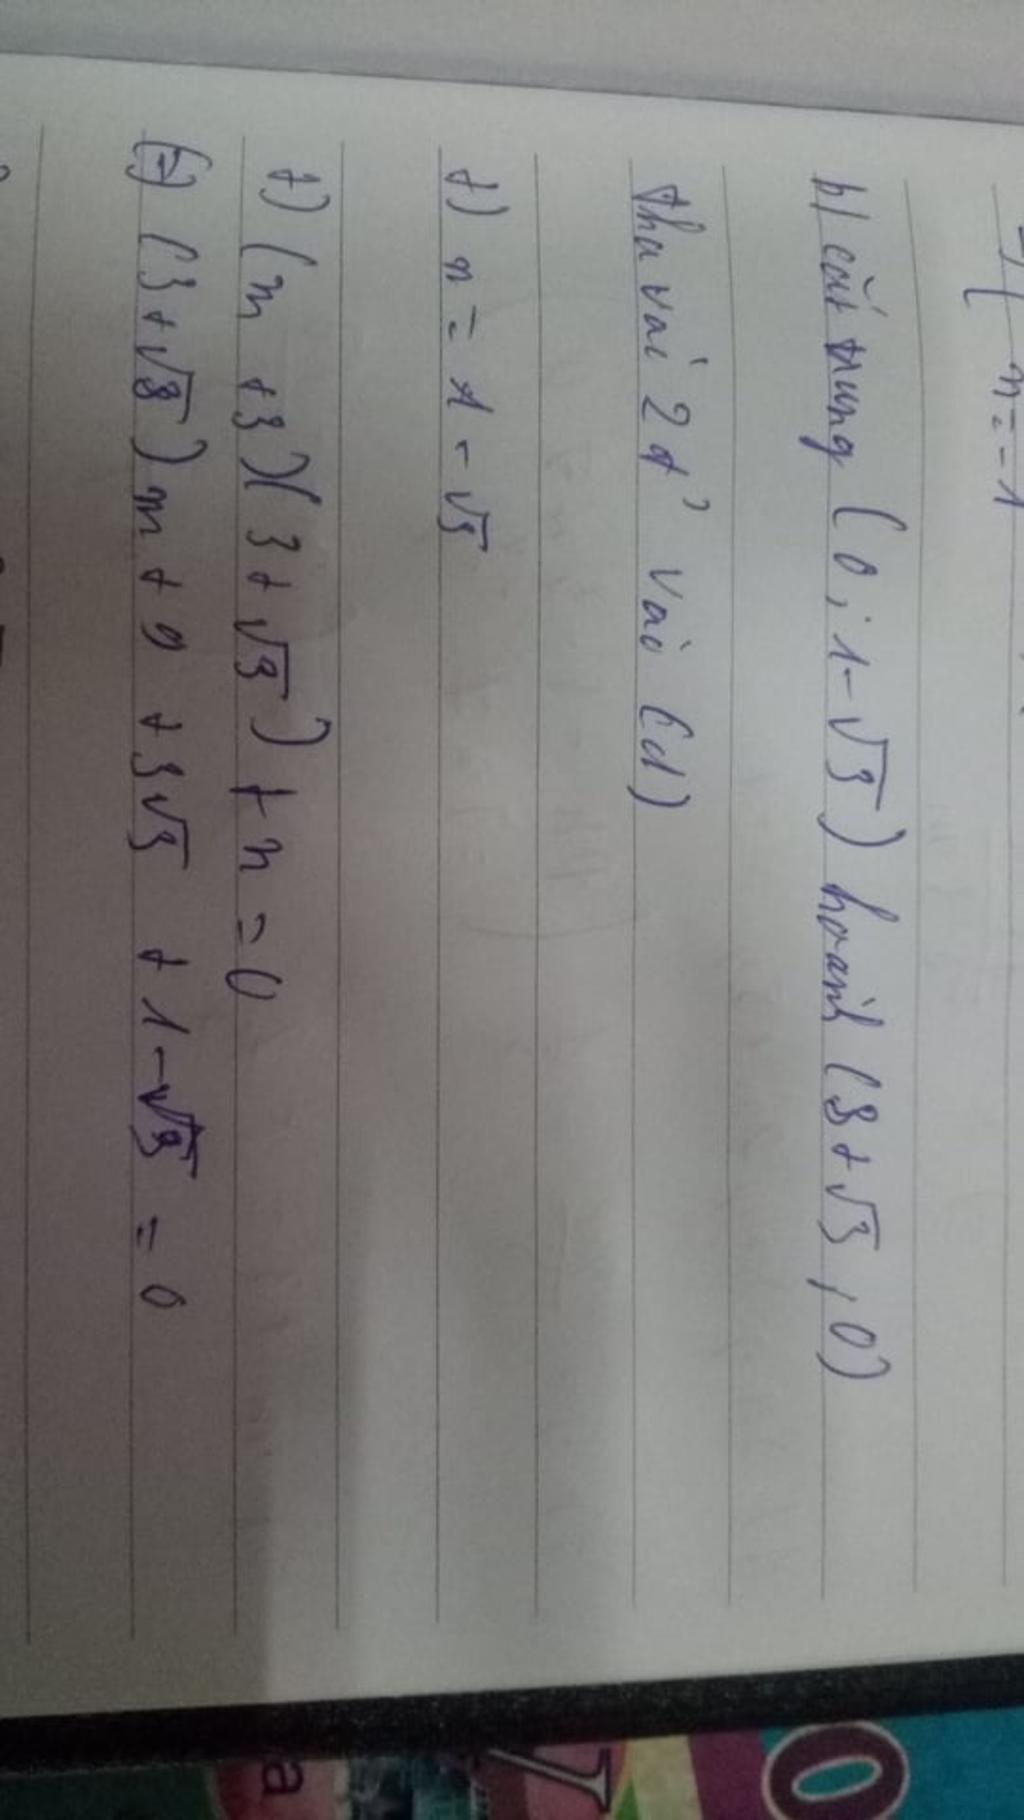 n = -1
b) cắt trung (0; 1-√3) hoành (3+√3, 0)
tha vài 2 đ' vào (d)
+) n = 1 - √3
+) (m +3)(3+√3) + n = 0
(=) (3+√3) m + 9 + 3√3 + 1-√3 = 0
0
a